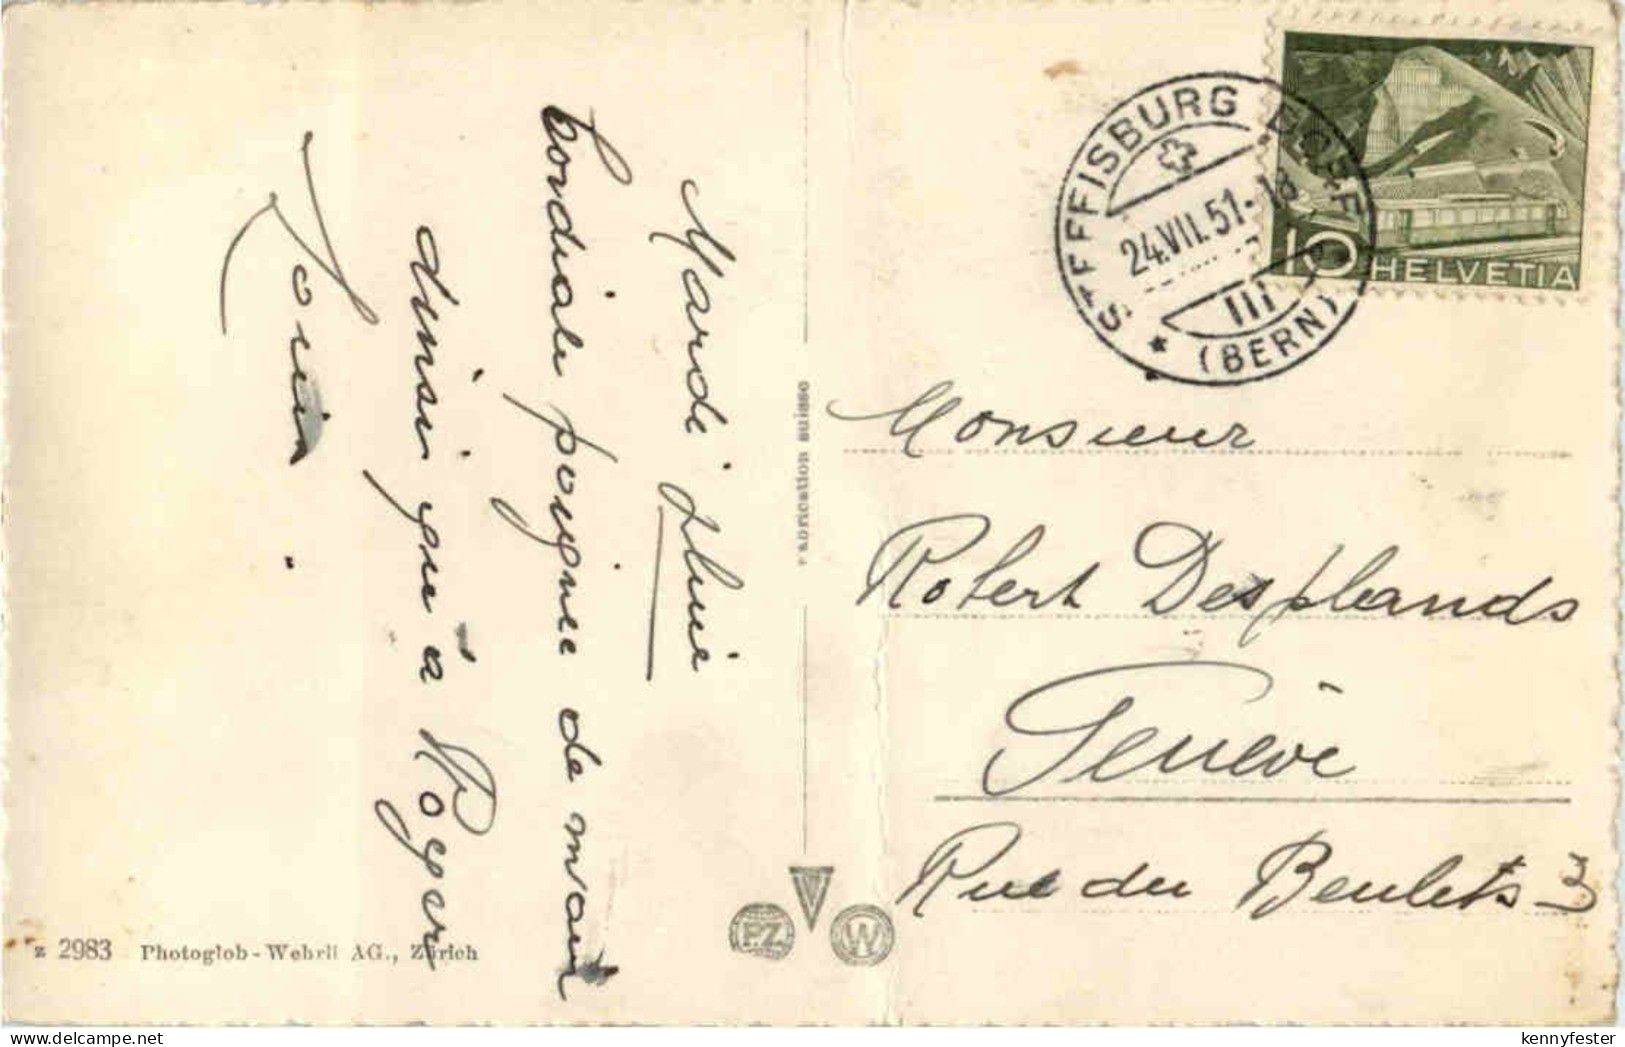 Mardi pluie
Cordiale poignée de main
ainsi que à Roger
Louis.
Fabrication suisse
z 2983 Photoglob-Wehrli AG., Zürich
P.Z.
W
STEFFISBURG DORF
24.VII.51.-18
III
(BERN)
10 HELVETIA
Monsieur
Robert Desplands
Genève
Rue du Beulets 3
kennyfester